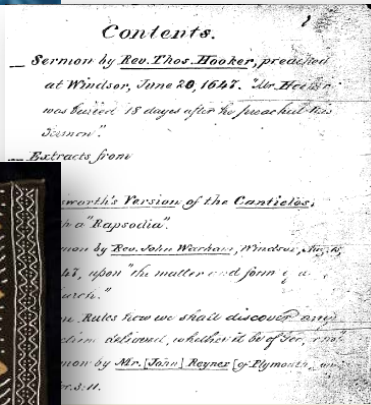 1
Contents.
— Sermon by Rev. Thos. Hooker, preached
at Windsor, June 20, 1647. "Mr. Hooker
was buried 18 days after he preached this
Sermon".
— Extracts from
sworth's Version of the Canticles;
h a "Rapsodia".
mon by Rev. John Warham, Windsor, Aug.
47, upon "the matter and form of a
urch."
Rules how we shall discover any
delivered, whether it be of
mon by Mr. [John] Reyner [of Plymouth,